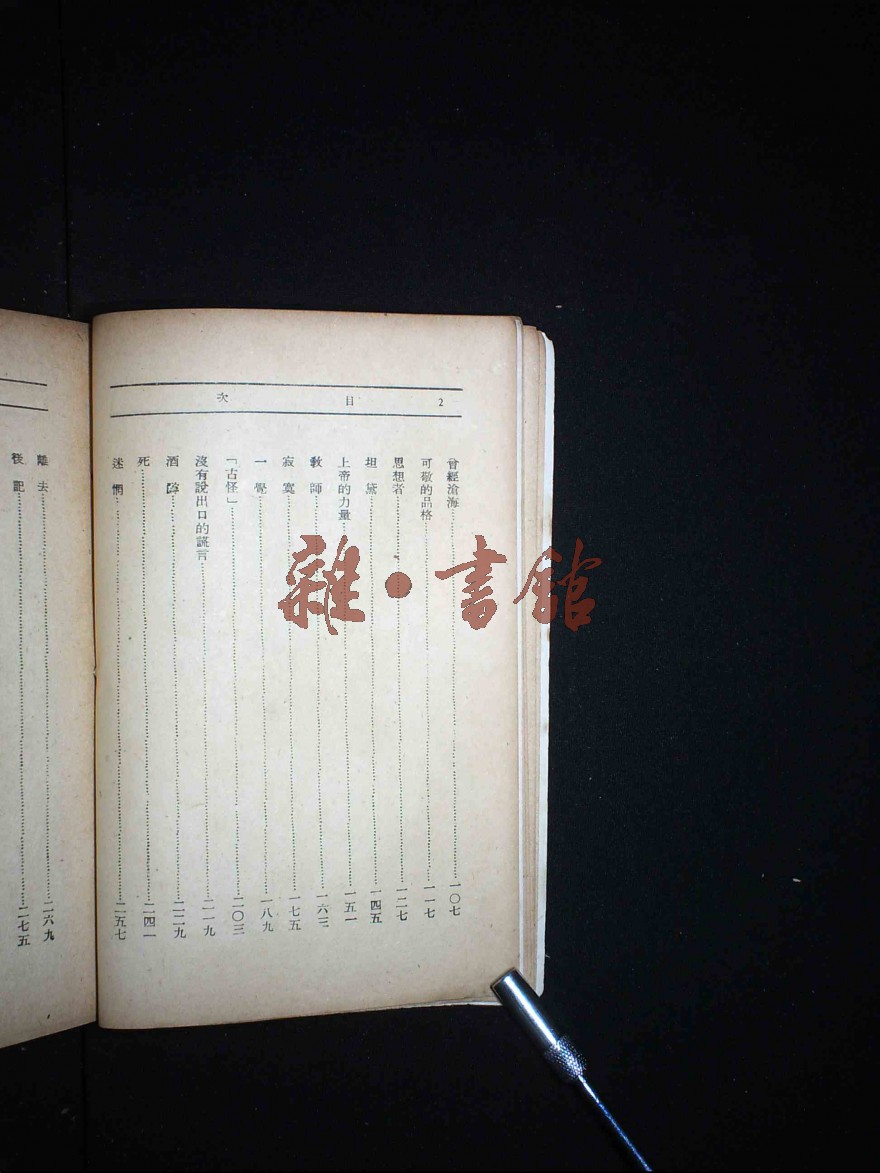 目次 2
曾經滄海 一〇七
可敬的品格 一一七
思想者 一二七
坦黛 一四五
上帝的力量 一五一
教師 一六三
寂寞 一七五
一覺 一八九
「古怪」 二〇三
沒有說出口的謊言 二一九
酒醉 二二九
死 二四一
迷惘 二五七
離去 二六九
後記 二七五
雜・書館